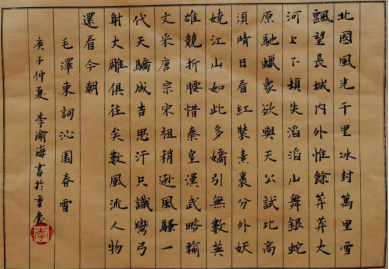 北國風光千里冰封萬里雪
飄望長城内外惟餘莽莽大
河上下頓失滔滔山舞銀蛇
原馳蠟象欲與天公試比高
須晴日看紅裝素裹分外妖
嬈江山如此多嬌引無數英
雄競折腰惜秦皇漢武略輸
文采唐宗宋祖稍遜風騷一
代天驕成吉思汗只識彎弓
射大雕俱往矣數風流人物
還看今朝
毛澤東詞沁園春雪
庚子仲夏李瀚海書於重慶
李